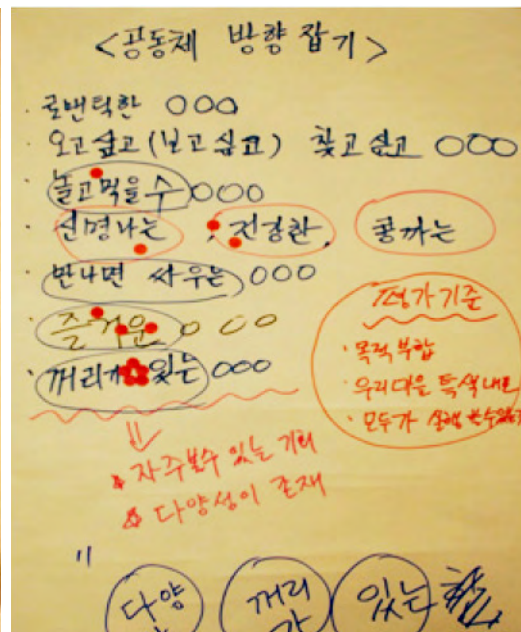 <공동체 방향 잡기>
· 로맨틱한 ○○○
· 오고싶고(보고싶고) 찾고싶고 ○○○
· 놀고먹을수 ○○○
· 신명나는, 건강한, 콩까는
· 만나면 싸우는 ○○○
· 즐거운 ○○○
· 꺼리가 있는 ○○○
평가기준
· 목적부합
· 우리마을 특색
· 모두가
⇓
자주볼수 있는 꺼리
다양성이 존재
"
다양 꺼리가 있는